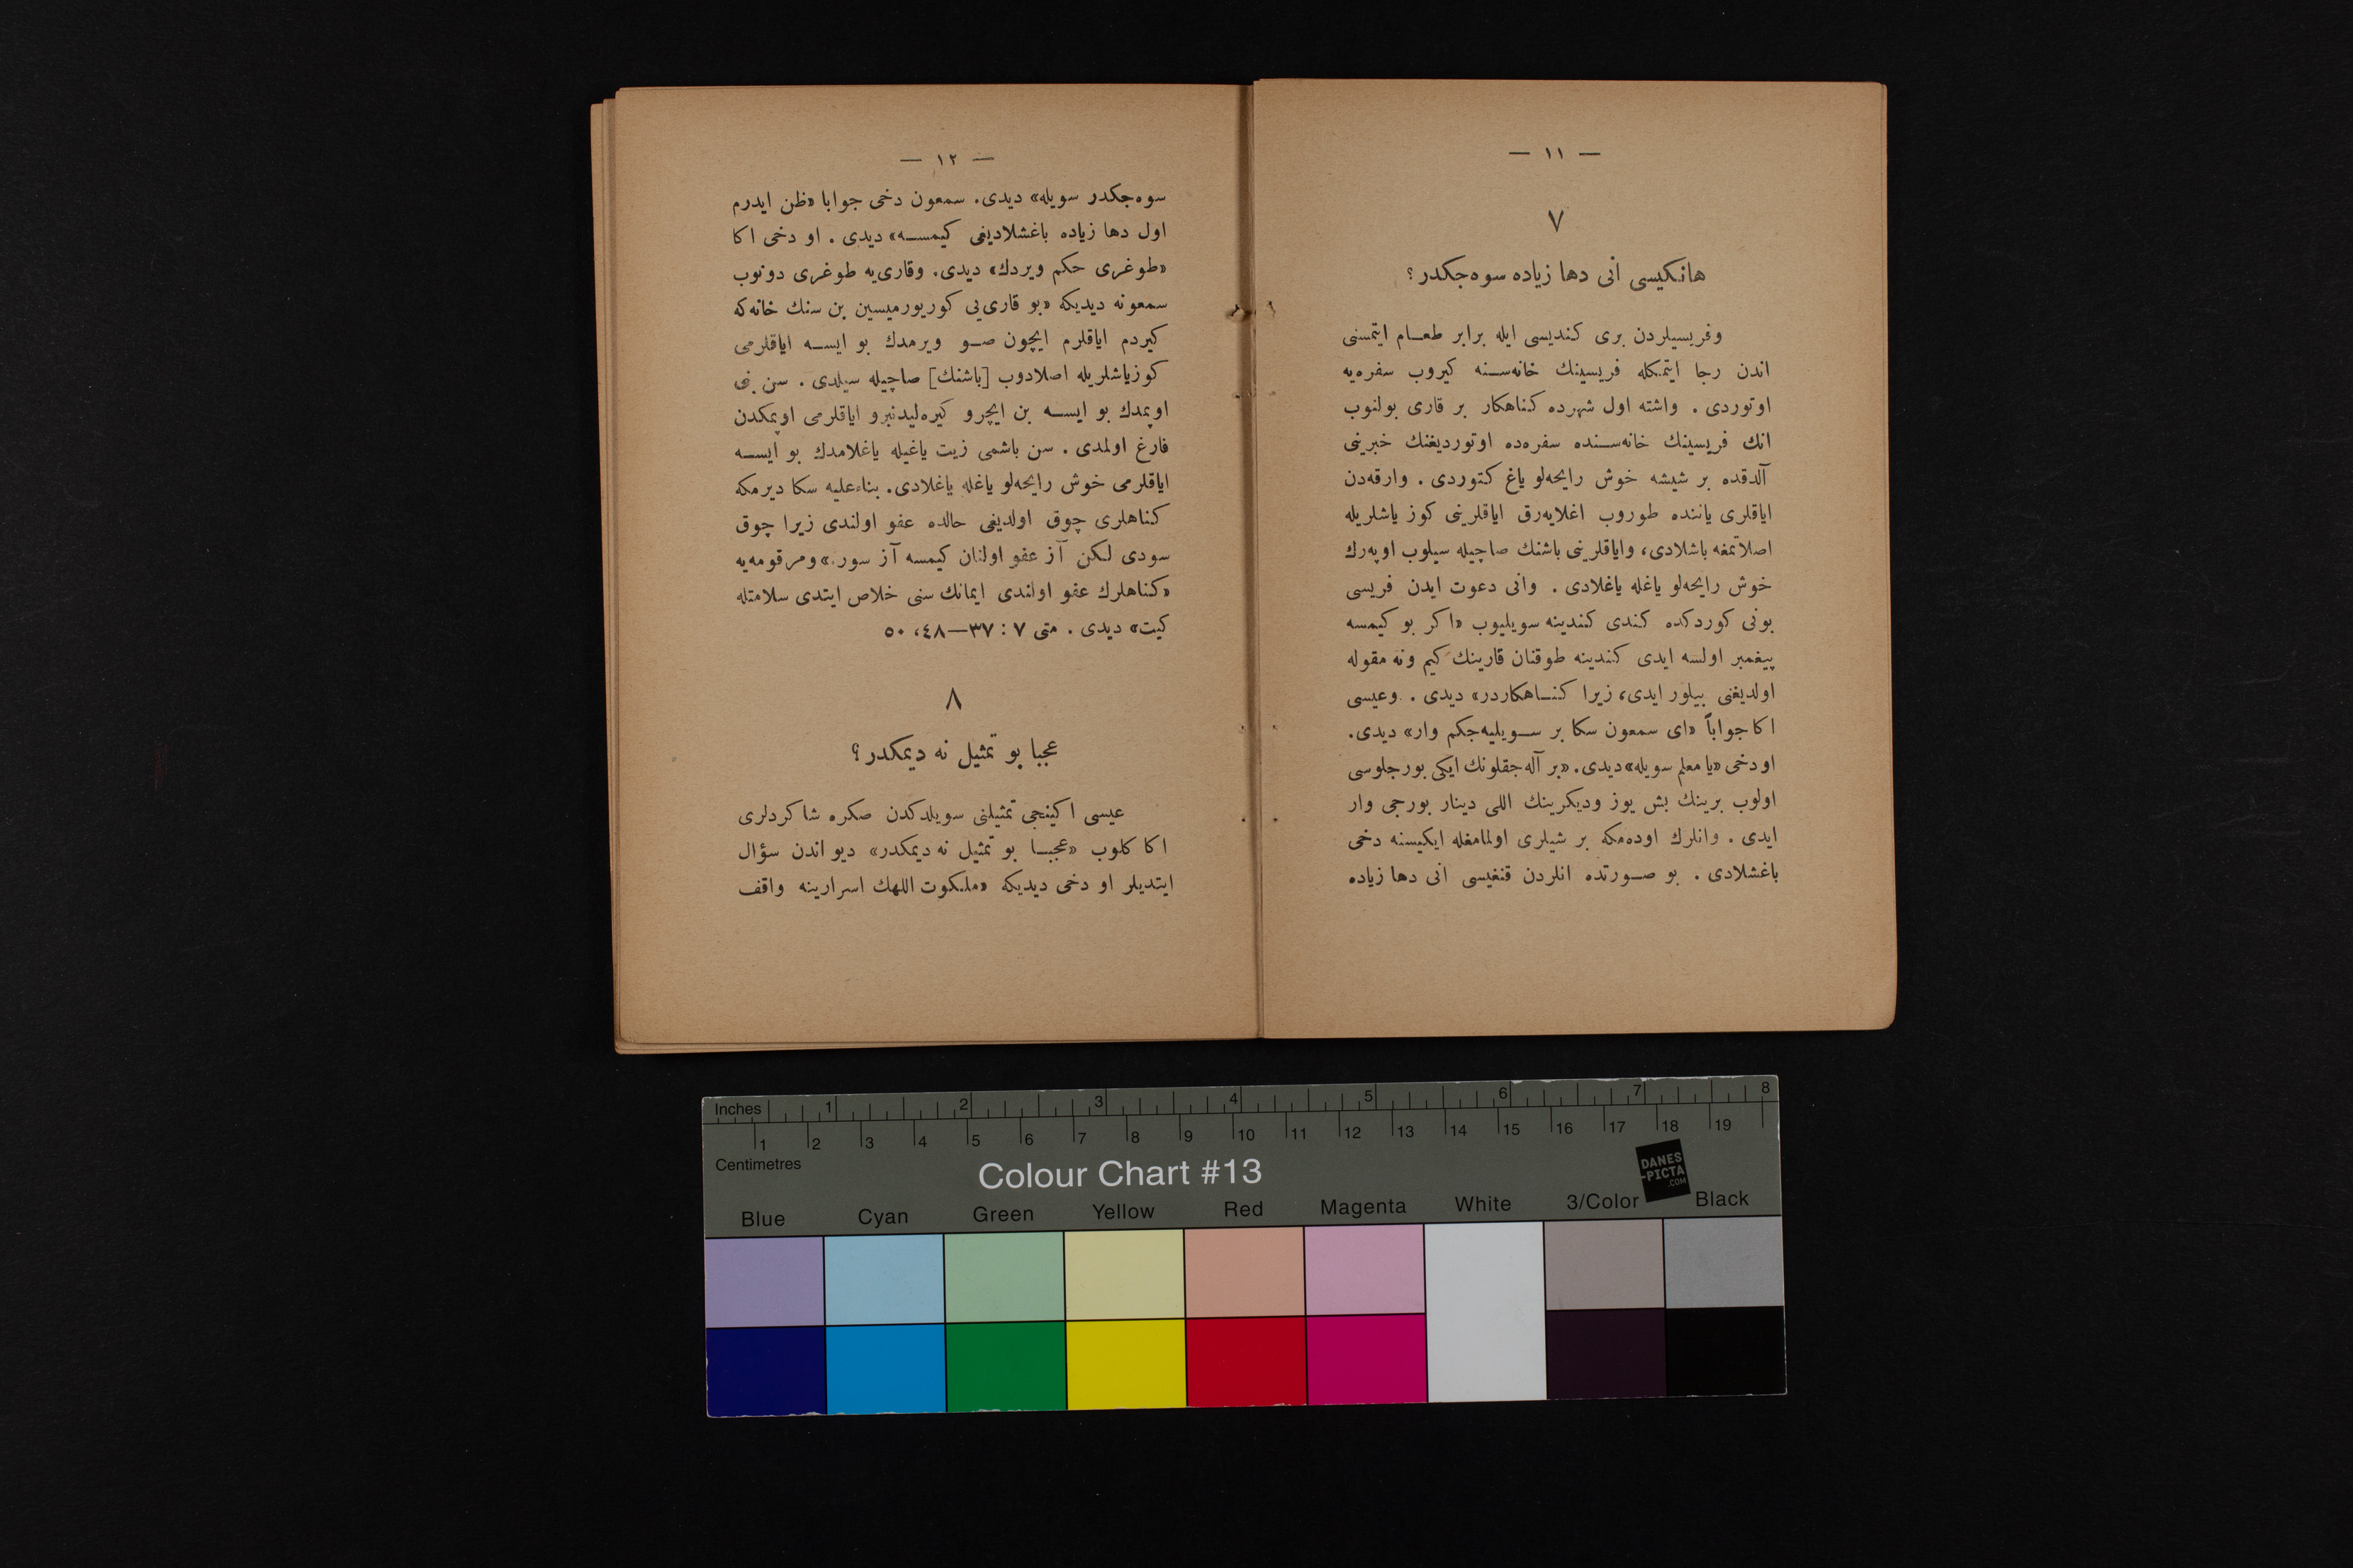 — ١١ —
٧
هانكيسى انى دها زياده سوه‌جكدر؟
وفريسيلردن برى كنديسى ايله برابر طعام ايتمسنى
اندن رجا ايتمكله فريسينك خانه‌سنه كيروب سفره‌يه
اوتوردى . واشته اول شهرده كناهكار بر قارى بولنوب
انك فريسينك خانه‌سنده سفره‌ده اوتورديغنك خبرينى
آلدقده بر شيشه خوش رايحه‌لو ياغ كتوردى . وارقه‌دن
اياقلرى ياننده طوروب اغلايه‌رق اياقلرينى كوز ياشلريله
اصلاتمغه باشلادى، واياقلرينى باشنك صاچيله سيلوب اوپه‌رك
خوش رايحه‌لو ياغله ياغلادى . وانى دعوت ايدن فريسى
بونى كوردكده كندى كندينه سويليوب «اكر بو كيمسه
پيغمبر اولسه ايدى كندينه طوقنان قارينك كيم ونه مقوله
اولديغنى بيلور ايدى، زيرا كناهكاردر» ديدى . وعيسى
اكا جواباً «اى سمعون سكا بر سويليه‌جكم وار» ديدى.
اودخى «يا معلم سويله» ديدى. «بر آله‌جقلونك ايكى بورجلوسى
اولوب برينك بش يوز وديكرينك اللى دينار بورجى وار
ايدى . وانلرك اوده‌مكه بر شيلرى اولمامغله ايكيسنه دخى
باغشلادى . بو صورتده انلردن قنغيسى انى دها زياده
— ١٢ —
سوه‌جكدر سويله» ديدى. سمعون دخى جوابا «ظن ايدرم
اول دها زياده باغشلاديغى كيمسه» ديدى . او دخى اكا
«طوغرى حكم ويردك» ديدى. وقارى‌يه طوغرى دونوب
سمعونه ديديكه «بو قارى‌يى كوريورميسين بن سنك خانه‌كه
كيردم اياقلرم ايچون صو ويرمدك بو ايسه اياقلرمى
كوزياشلريله اصلادوب [باشنك] صاچيله سيلدى . سن بنى
اوپمدك بو ايسه بن ايچرو كيره‌ليدنبرو اياقلرمى اوپمكدن
فارغ اولمدى . سن باشمى زيت ياغيله ياغلامدك بو ايسه
اياقلرمى خوش رايحه‌لو ياغله ياغلادى. بناءعليه سكا ديرمكه
كناهلرى چوق اولديغى حالده عفو اولندى زيرا چوق
سودى لكن آز عفو اولنان كيمسه آز سور.» ومرقومه‌يه
«كناهلرك عفو اولندى ايمانك سنى خلاص ايتدى سلامتله
كيت» ديدى . متى ٧ : ٣٧—٤٨، ٥٠
٨
عجبا بو تمثيل نه ديمكدر؟
عيسى اكينجى تمثيلنى سويلدكدن صكره شاكردلرى
اكا كلوب «عجبا بو تمثيل نه ديمكدر» ديو اندن سؤال
ايتديلر او دخى ديديكه «ملكوت اللهك اسرارينه واقف
Inches 1 2 3 4 5 6 7 8
1 2 3 4 5 6 7 8 9 10 11 12 13 14 15 16 17 18 19
Centimetres
Colour Chart #13
DANES
-PICTA
.COM
Blue Cyan Green Yellow Red Magenta White 3/Color Black